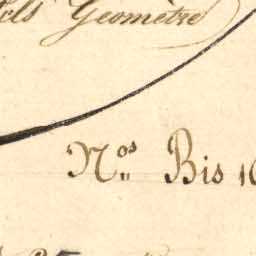 fils Géomètre
Nos Bis 10